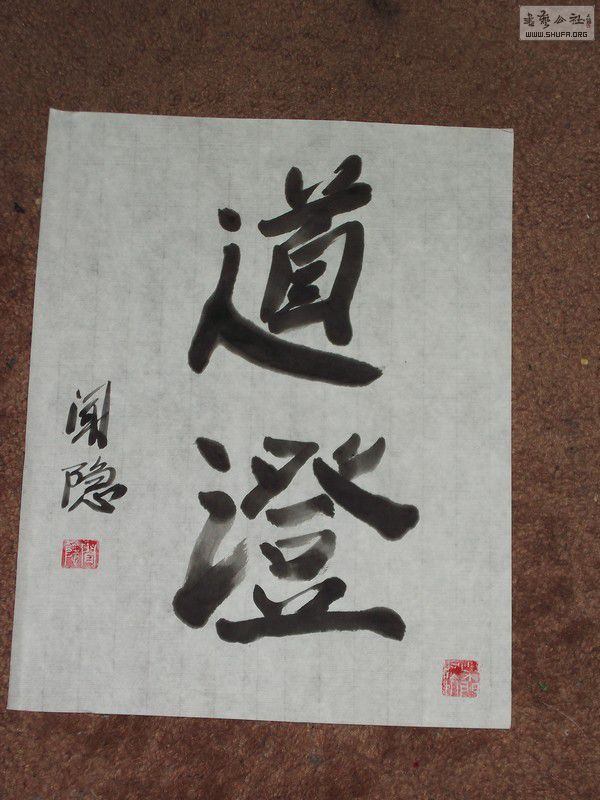 道澄
闻隐
书艺公社
WWW.SHUFA.ORG